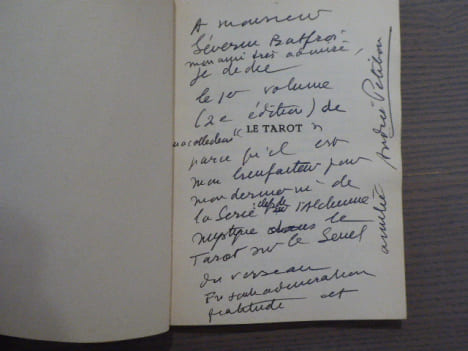 A monsieur
Séverin Batfroi
mon ami très admiré,
je dédie
le 1er volume
(2e édition) de
ma collection "LE TAROT"
parce qu'il est
mon bienfaiteur pour
mon dernier né de
la Série clefs de l'Alchimie
mystique dans le
Tarot sur le Seuil
du verseau
En toute admiration
gratitude et
amitié André Petibon